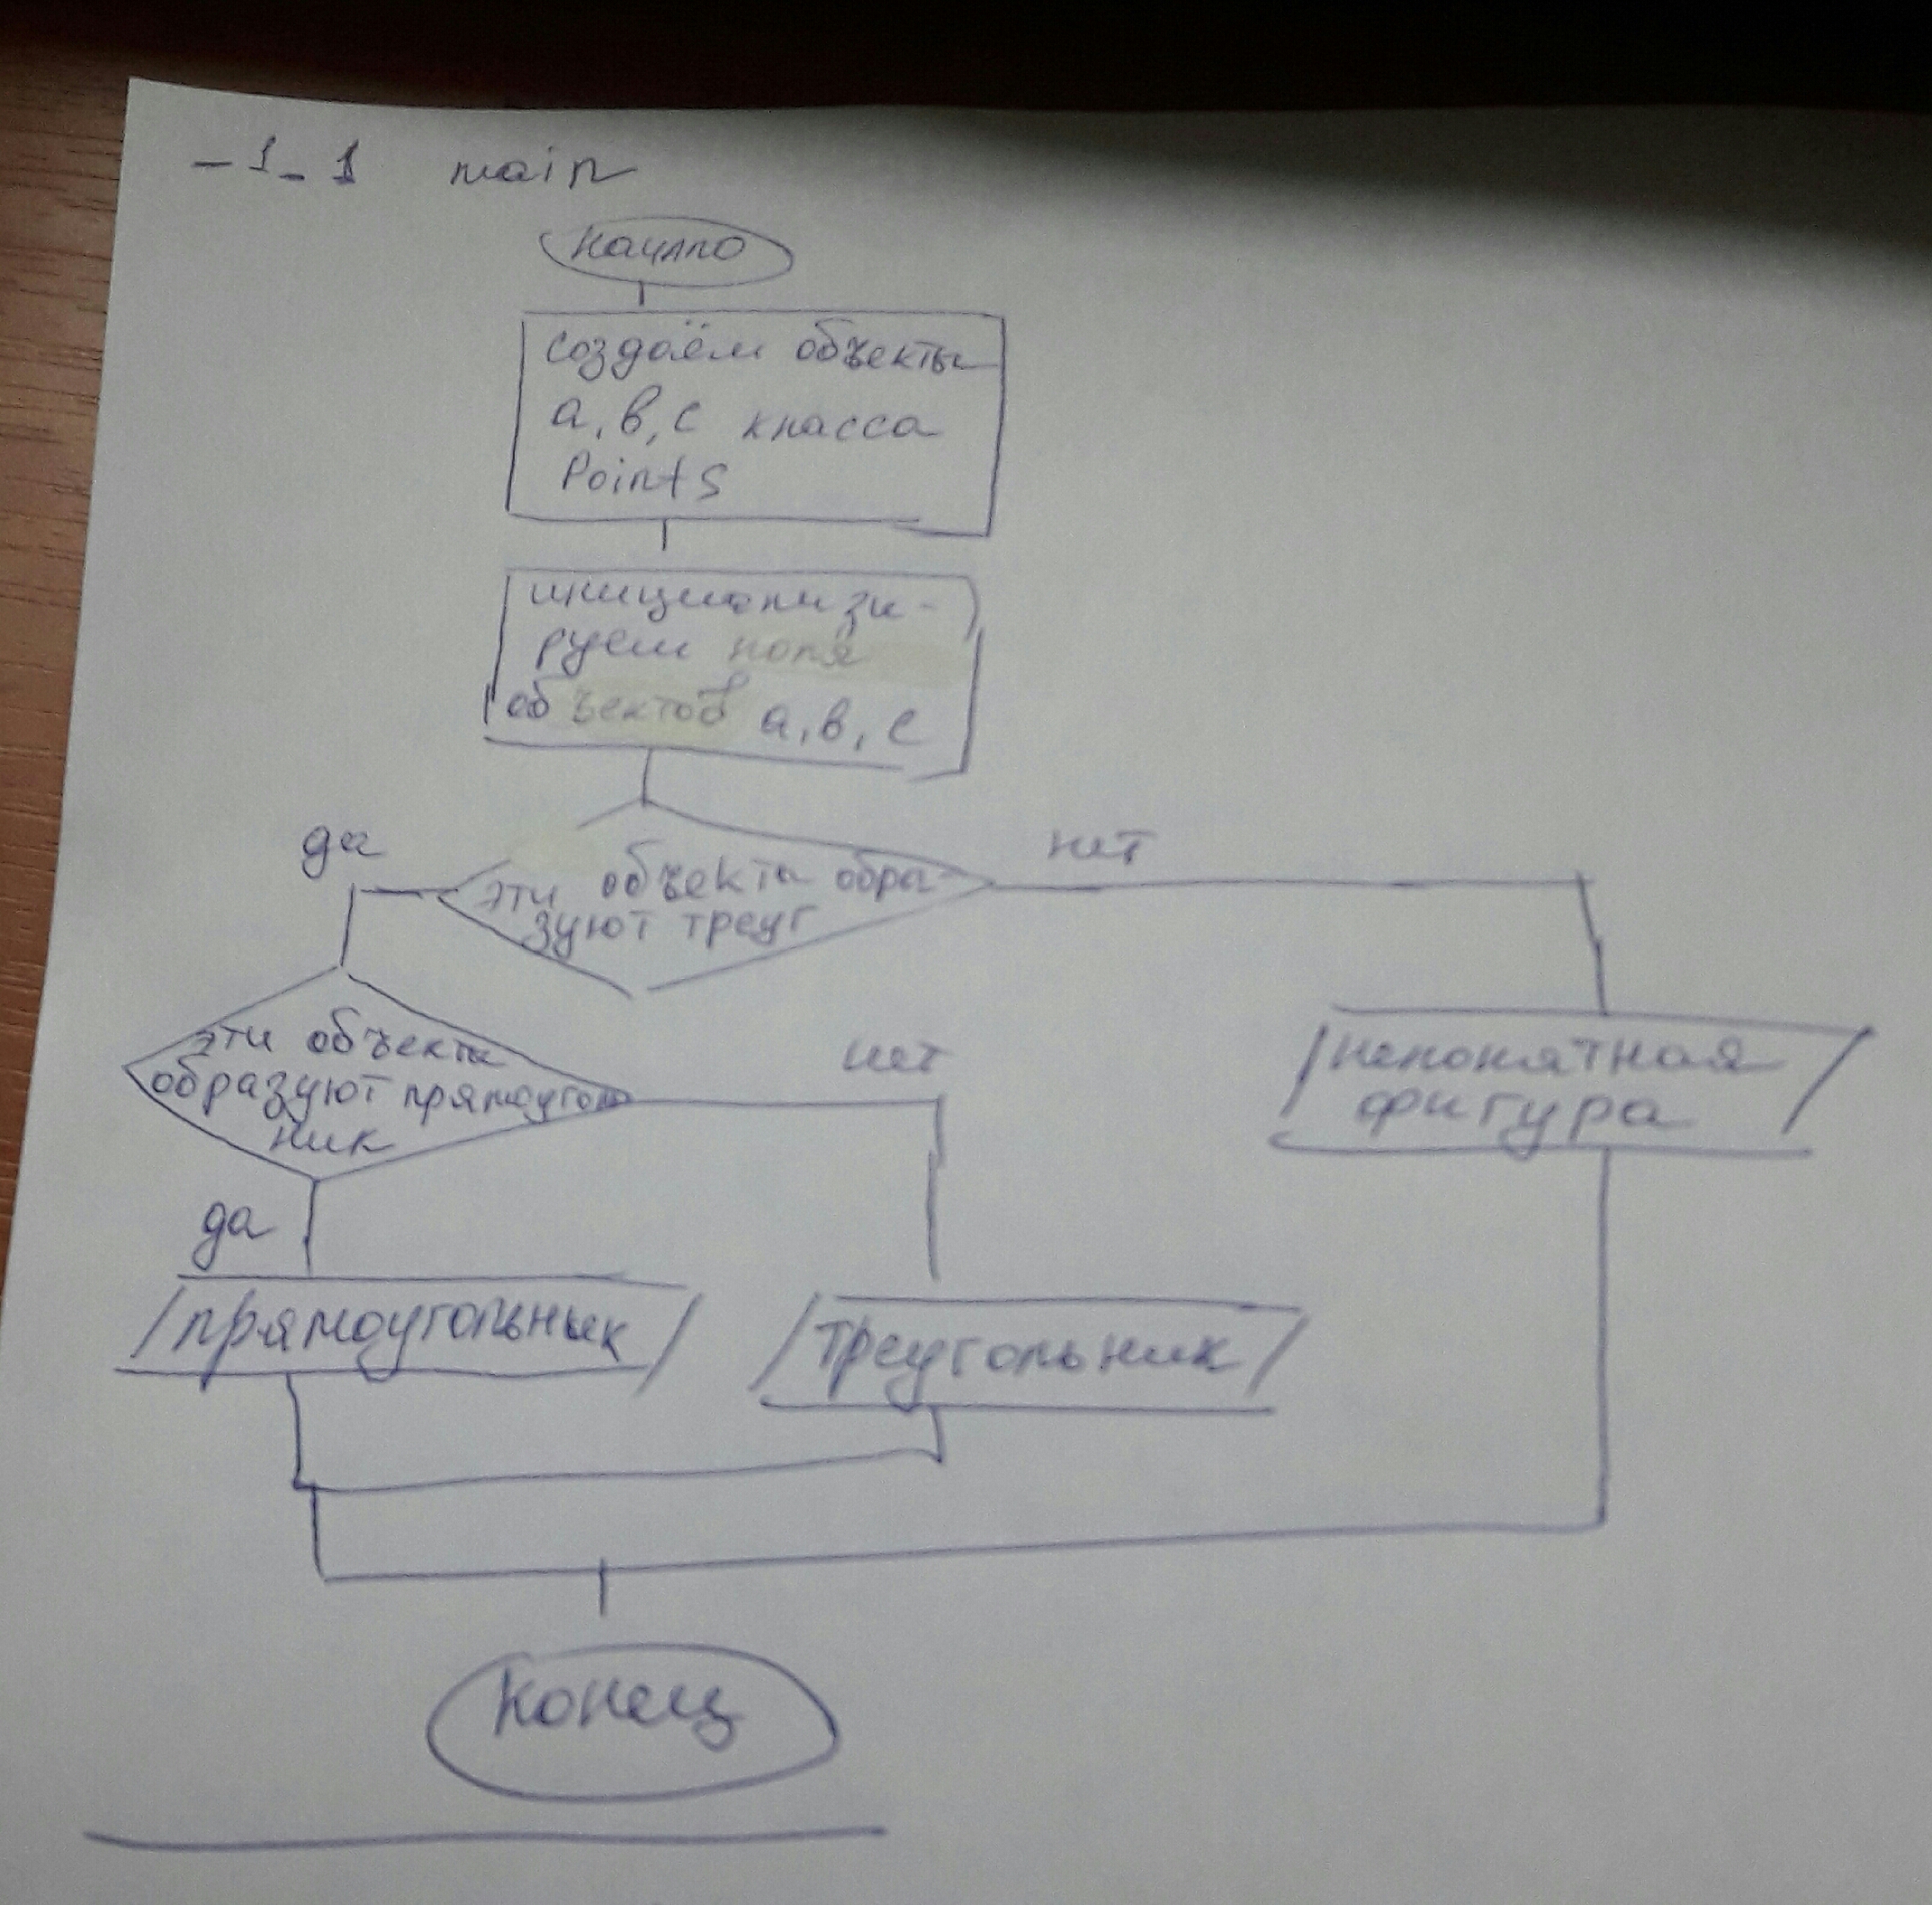 _1_1 main
начало
создаём объекты
а, в, с класса
Points
инициализи-
руем поля
объектов а, в, с
да
нет
эти объекты обра-
зуют треуг
эти объекты
образуют прямоуголь
ник
нет
непонятная
фигура
да
прямоугольник
треугольник
конец